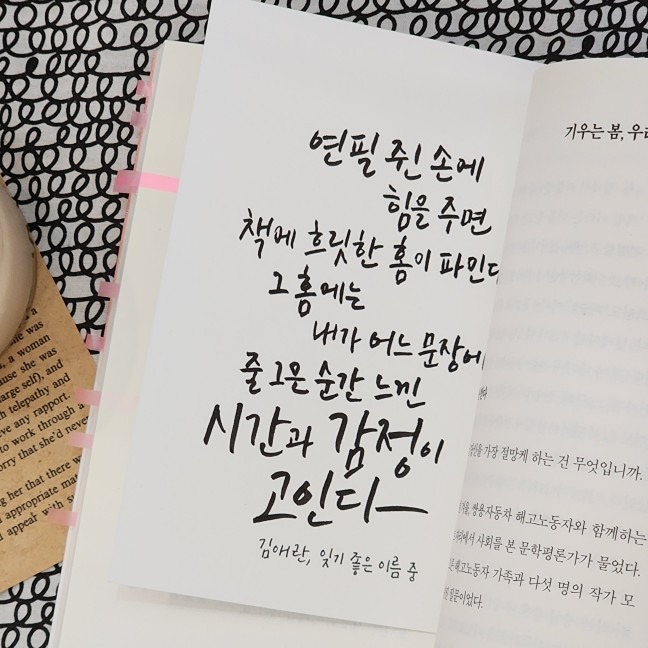 연필 쥔 손에
힘을 주면
책에 흐릿한 홈이 파인다
그 홈에는
내가 어느 문장에
줄 그은 순간 느낀
시간과 감정이
고인다
김애란, 잊기 좋은 이름 중
기우는 봄, 우리
가장 절망케 하는 건 무엇입니까.
쌍용자동차 해고노동자와 함께하는
에서 사회를 본 문학평론가가 물었다.
해고노동자 가족과 다섯 명의 작가 모
she was
a woman
cause she was
large self), and
telepathy and
ve any rapport.
to work through a
orry that she'd never
ng her that there
appropriate ma
d appear with s